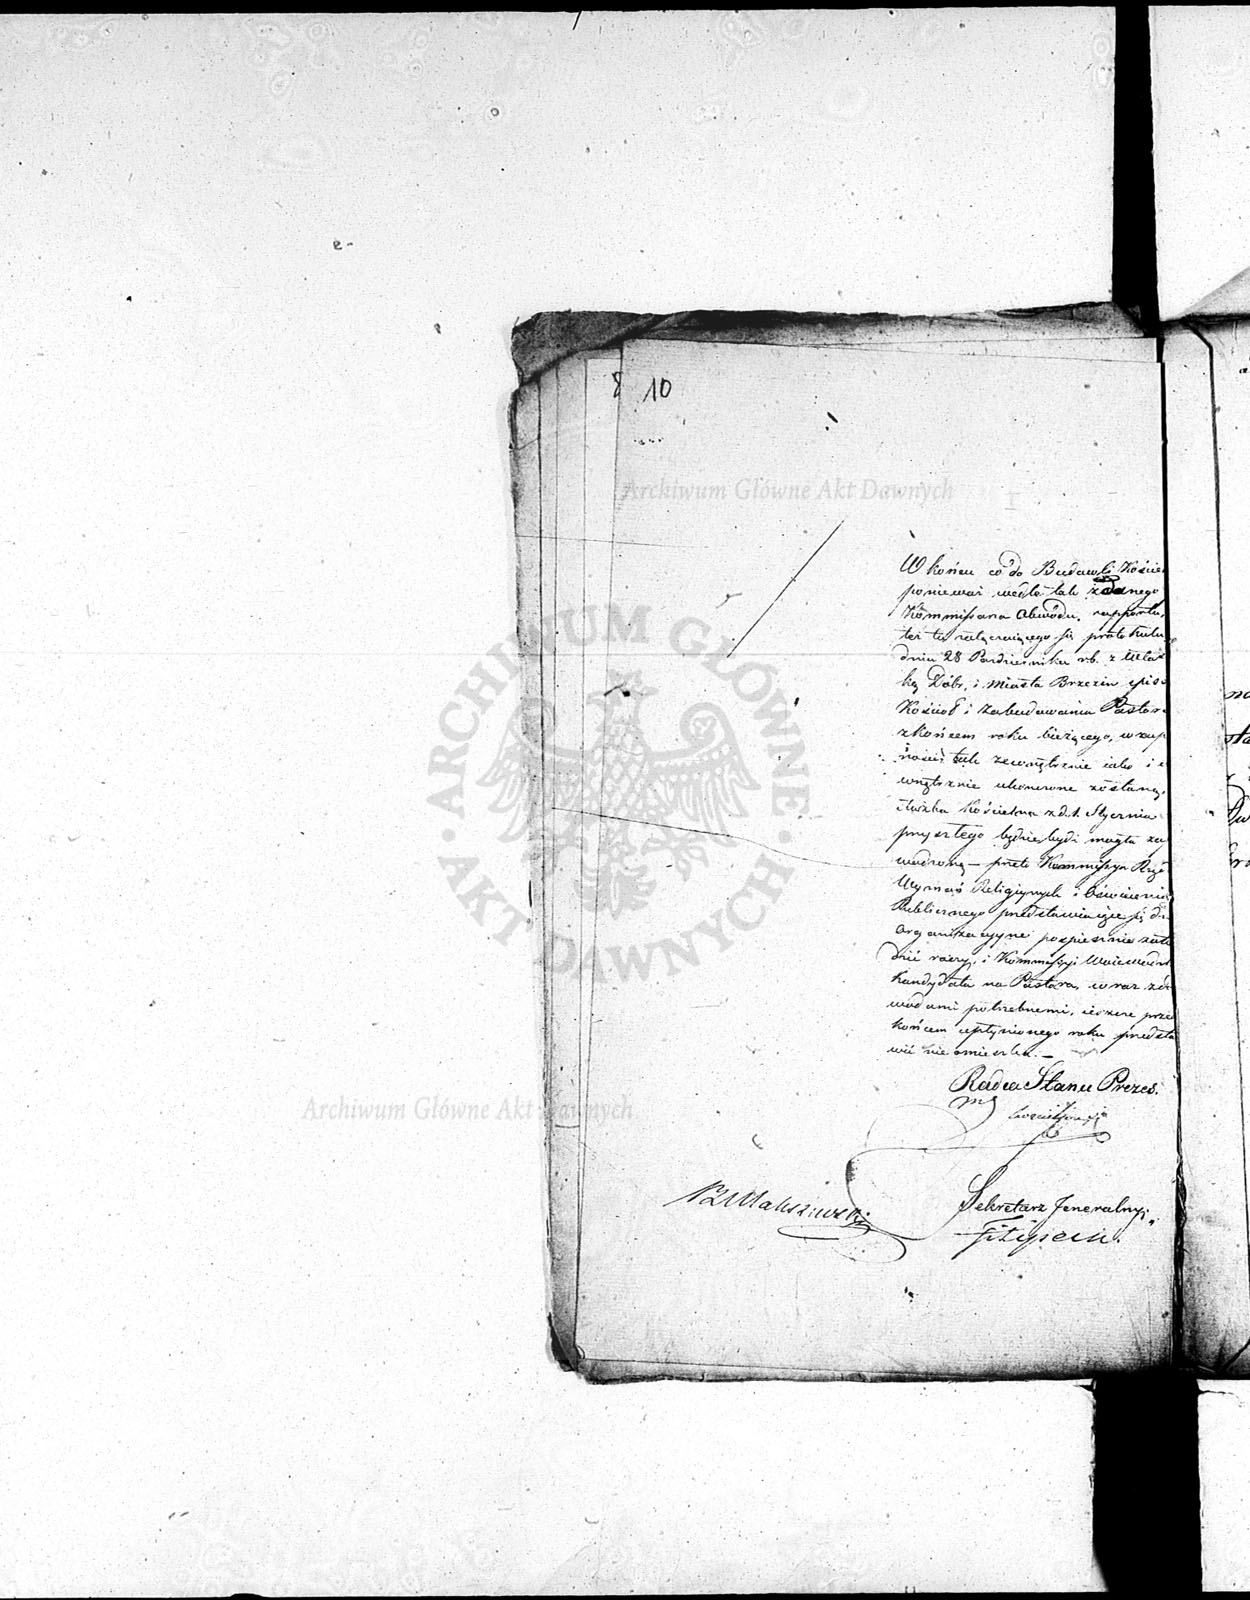 8 10
Archiwum Główne Akt Dawnych
W końcu co do Budowli Kościel
ponieważ wedle tak zdanego
Kommissarza Obwodu, rapportu,
też tu załączaiącego się protokułu
dnia 28 Pazdziernika rb. z Wła
Dóbr, i Miasta Brzezin spiso
Kościoł i Zabudowania Pastor
z końcem roku bieżącego, w zup
ności tak zewnętrznie iako i w
wnętrznie ukonczone zostaną,
służba Kościelna z d. 1. Stycznia
przyszłego będzie bydź mogła za
wadzoną — przeto Kommissya Rzą
Wyznań Religiynych i Oświecenia
Publicznego przedstawiaiące się
Organizacyyne pospiesznie zała
dnić raczy, i Kommissyi Woiewodz
kandydata na Pastora, wraz z do
wodami potrzebnemi, ieszcze prze
końcem upłynionego roku przedsta
wić nie omieszka. —
Radca Stanu Prezes.
Archiwum Główne Akt Dawnych
Sekretarz Jeneralny
Filipecki.
ARCHIWUM GŁÓWNE
AKT DAWNYCH